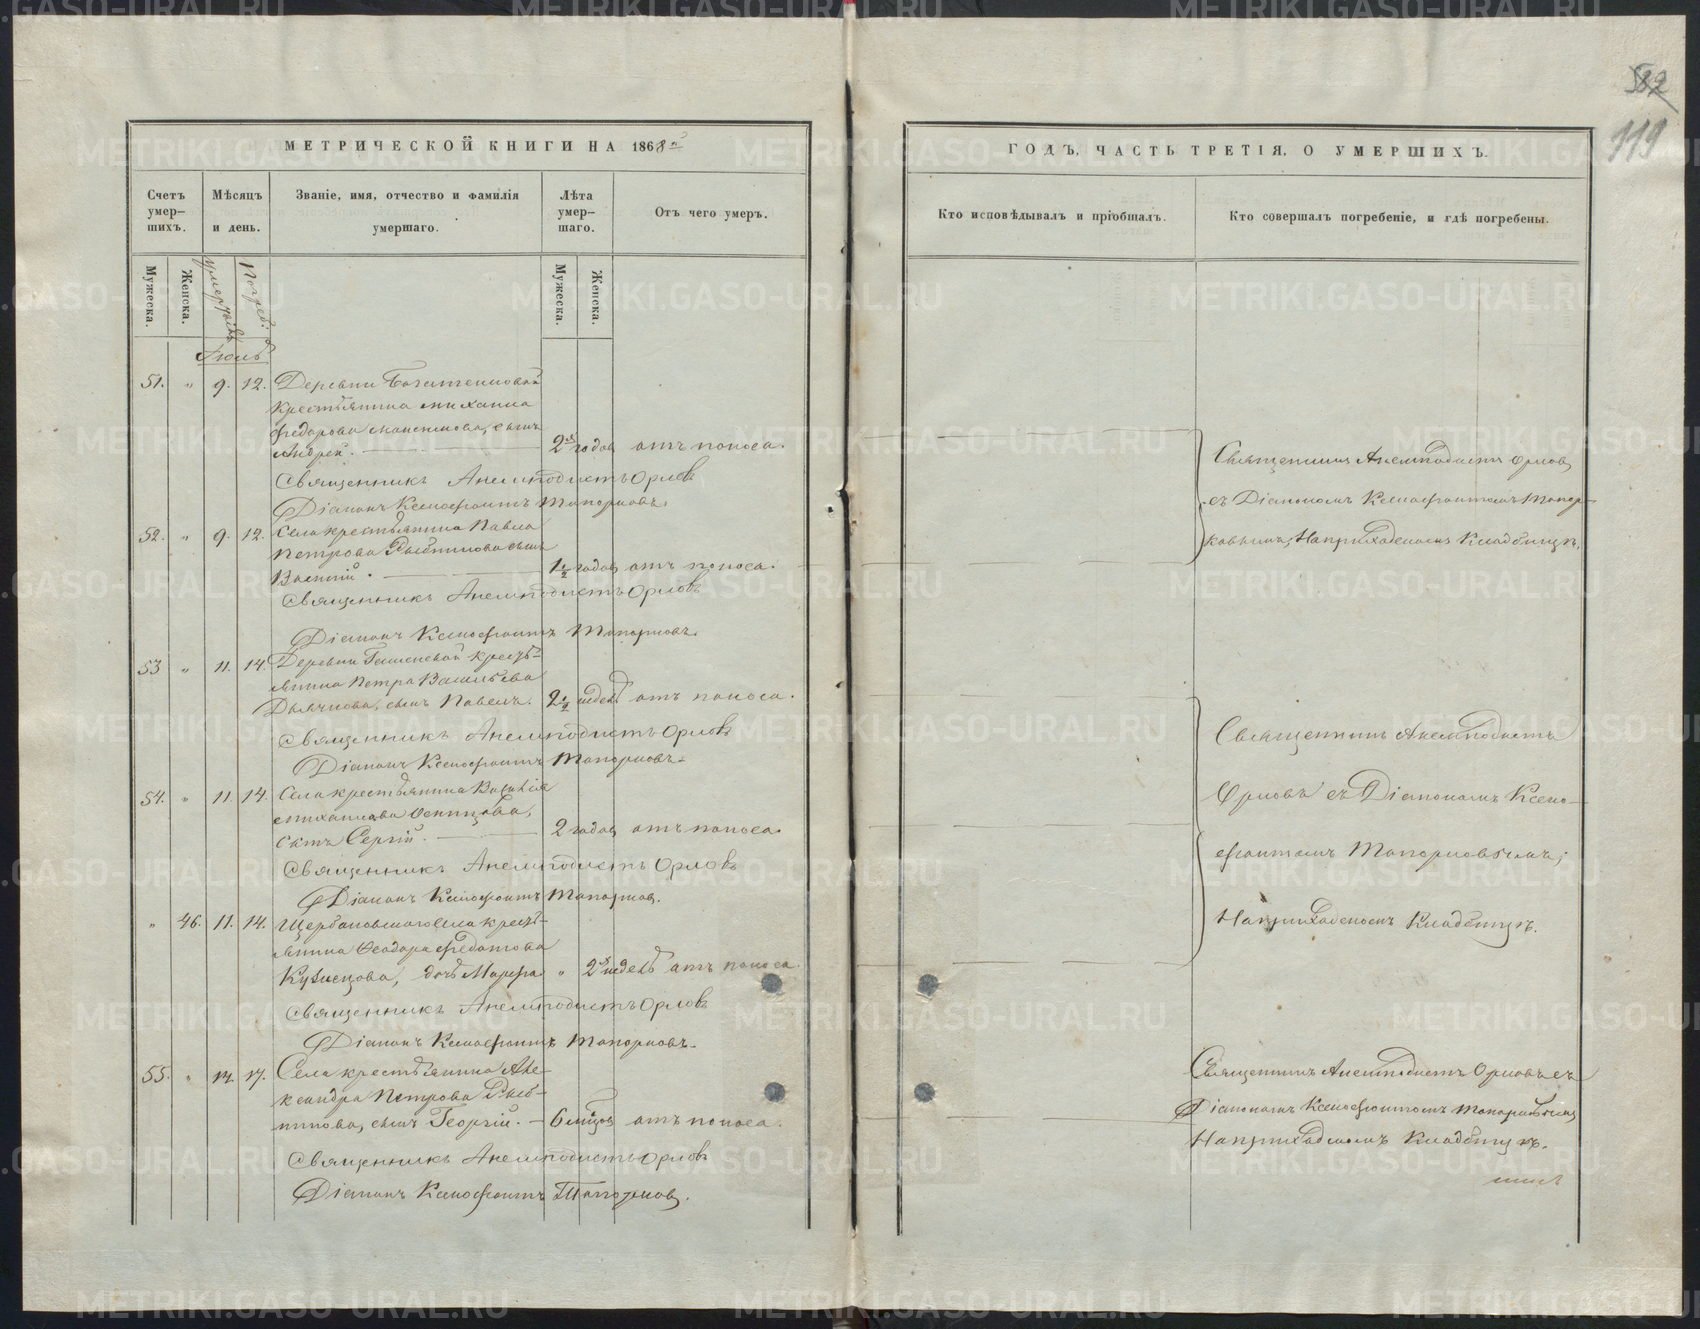 582
119
МЕТРИЧЕСКОЙ КНИГИ НА 1868й
ГОДЪ, ЧАСТЬ ТРЕТІЯ, О УМЕРШИХЪ.
Счетъ умер-шихъ.
Мѣсяцъ и день.
Званіе, имя, отчество и фамилія умершаго.
Лѣта умер-шаго.
Отъ чего умеръ.
Кто исповѣдывалъ и пріобщалъ.
Кто совершалъ погребеніе, и гдѣ погребены.
Мужеска.
Женска.
Погреб.
Мужеска.
Женска.
Іюль
51. " 9. 12. Деревни
крестьянина Михаила
Федорова сынъ
Андрей. 2хъ годов отъ поноса.
Священникъ Анемподистъ Орловъ
Діаконъ Ксенофонтъ Топорковъ.
52. " 9. 12. Села крестьянина Павла
Петрова сынъ
Василій. 1½ годов отъ поноса.
Священникъ Анемподистъ Орловъ
Діаконъ Ксенофонтъ Топорковъ.
53 " 11. 14. Деревни кресть-
янина Петра Васильева
Дьячкова, сынъ Павелъ. 2½ недел отъ поноса.
Священникъ Анемподистъ Орловъ
Діаконъ Ксенофонтъ Топорковъ.
54. " 11. 14. Села крестьянина Василія
Михаилова
сынъ Сергій. 2 годов отъ поноса.
Священникъ Анемподистъ Орловъ
Діаконъ Ксенофонтъ Топорков.
" 46. 11. 14. села кресть-
янина Феодора Федотова
Кузнецова, дочь Марфа " 2х недель отъ поноса.
Священникъ Анемподистъ Орловъ
Діаконъ Ксенофонтъ Топорковъ.
55. " 14. 17. Села крестьянина Але-
ксандра Петрова
сынъ Георгій. 6 отъ поноса.
Священникъ Анемподистъ Орловъ
Діаконъ Ксенофонтъ Топорков.
Священникъ Анемподистъ Орлов
съ Діакономъ Ксенофонтомъ Топор-
ковымъ, На приходскомъ Кладбищѣ.
Священникъ Анемподистъ
Орловъ съ Діакономъ Ксено-
фонтомъ Топорковымъ,
На приходскомъ Кладбищѣ.
Священникъ Анемподистъ Орловъ съ
Діакономъ Ксенофонтомъ Топорковым
На приходскомъ Кладбищѣ.
METRIKI.GASO-URAL.RU